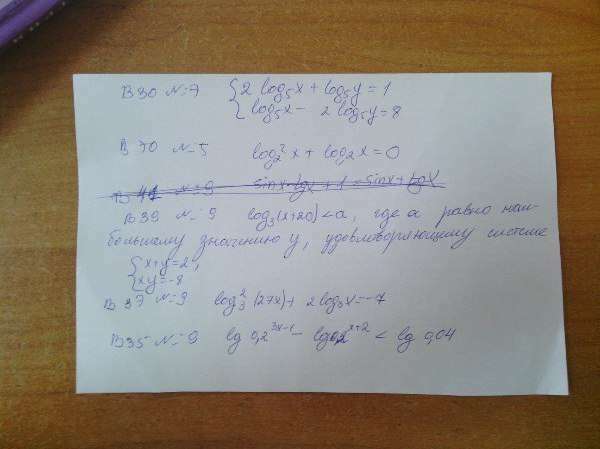 В30 №7 { 2 log₅x + log₅y = 1
log₅x - 2 log₅y = 8
В 70 №5 log₂²x + log₂x = 0
В 41 № 9 sinx tgx + 1 = sinx + tgx
В39 № 9 log₃(x+20) < a, где а равно наи-
большему значению у, удовлетворяющему системе
{ x+y=2,
xy=-8
В 37 №9 log₃²(27x) + 2 log₃x = -7
В35 №9 lg 0,2³ˣ⁻¹ - lg 0,2ˣ⁺² < lg 0,04